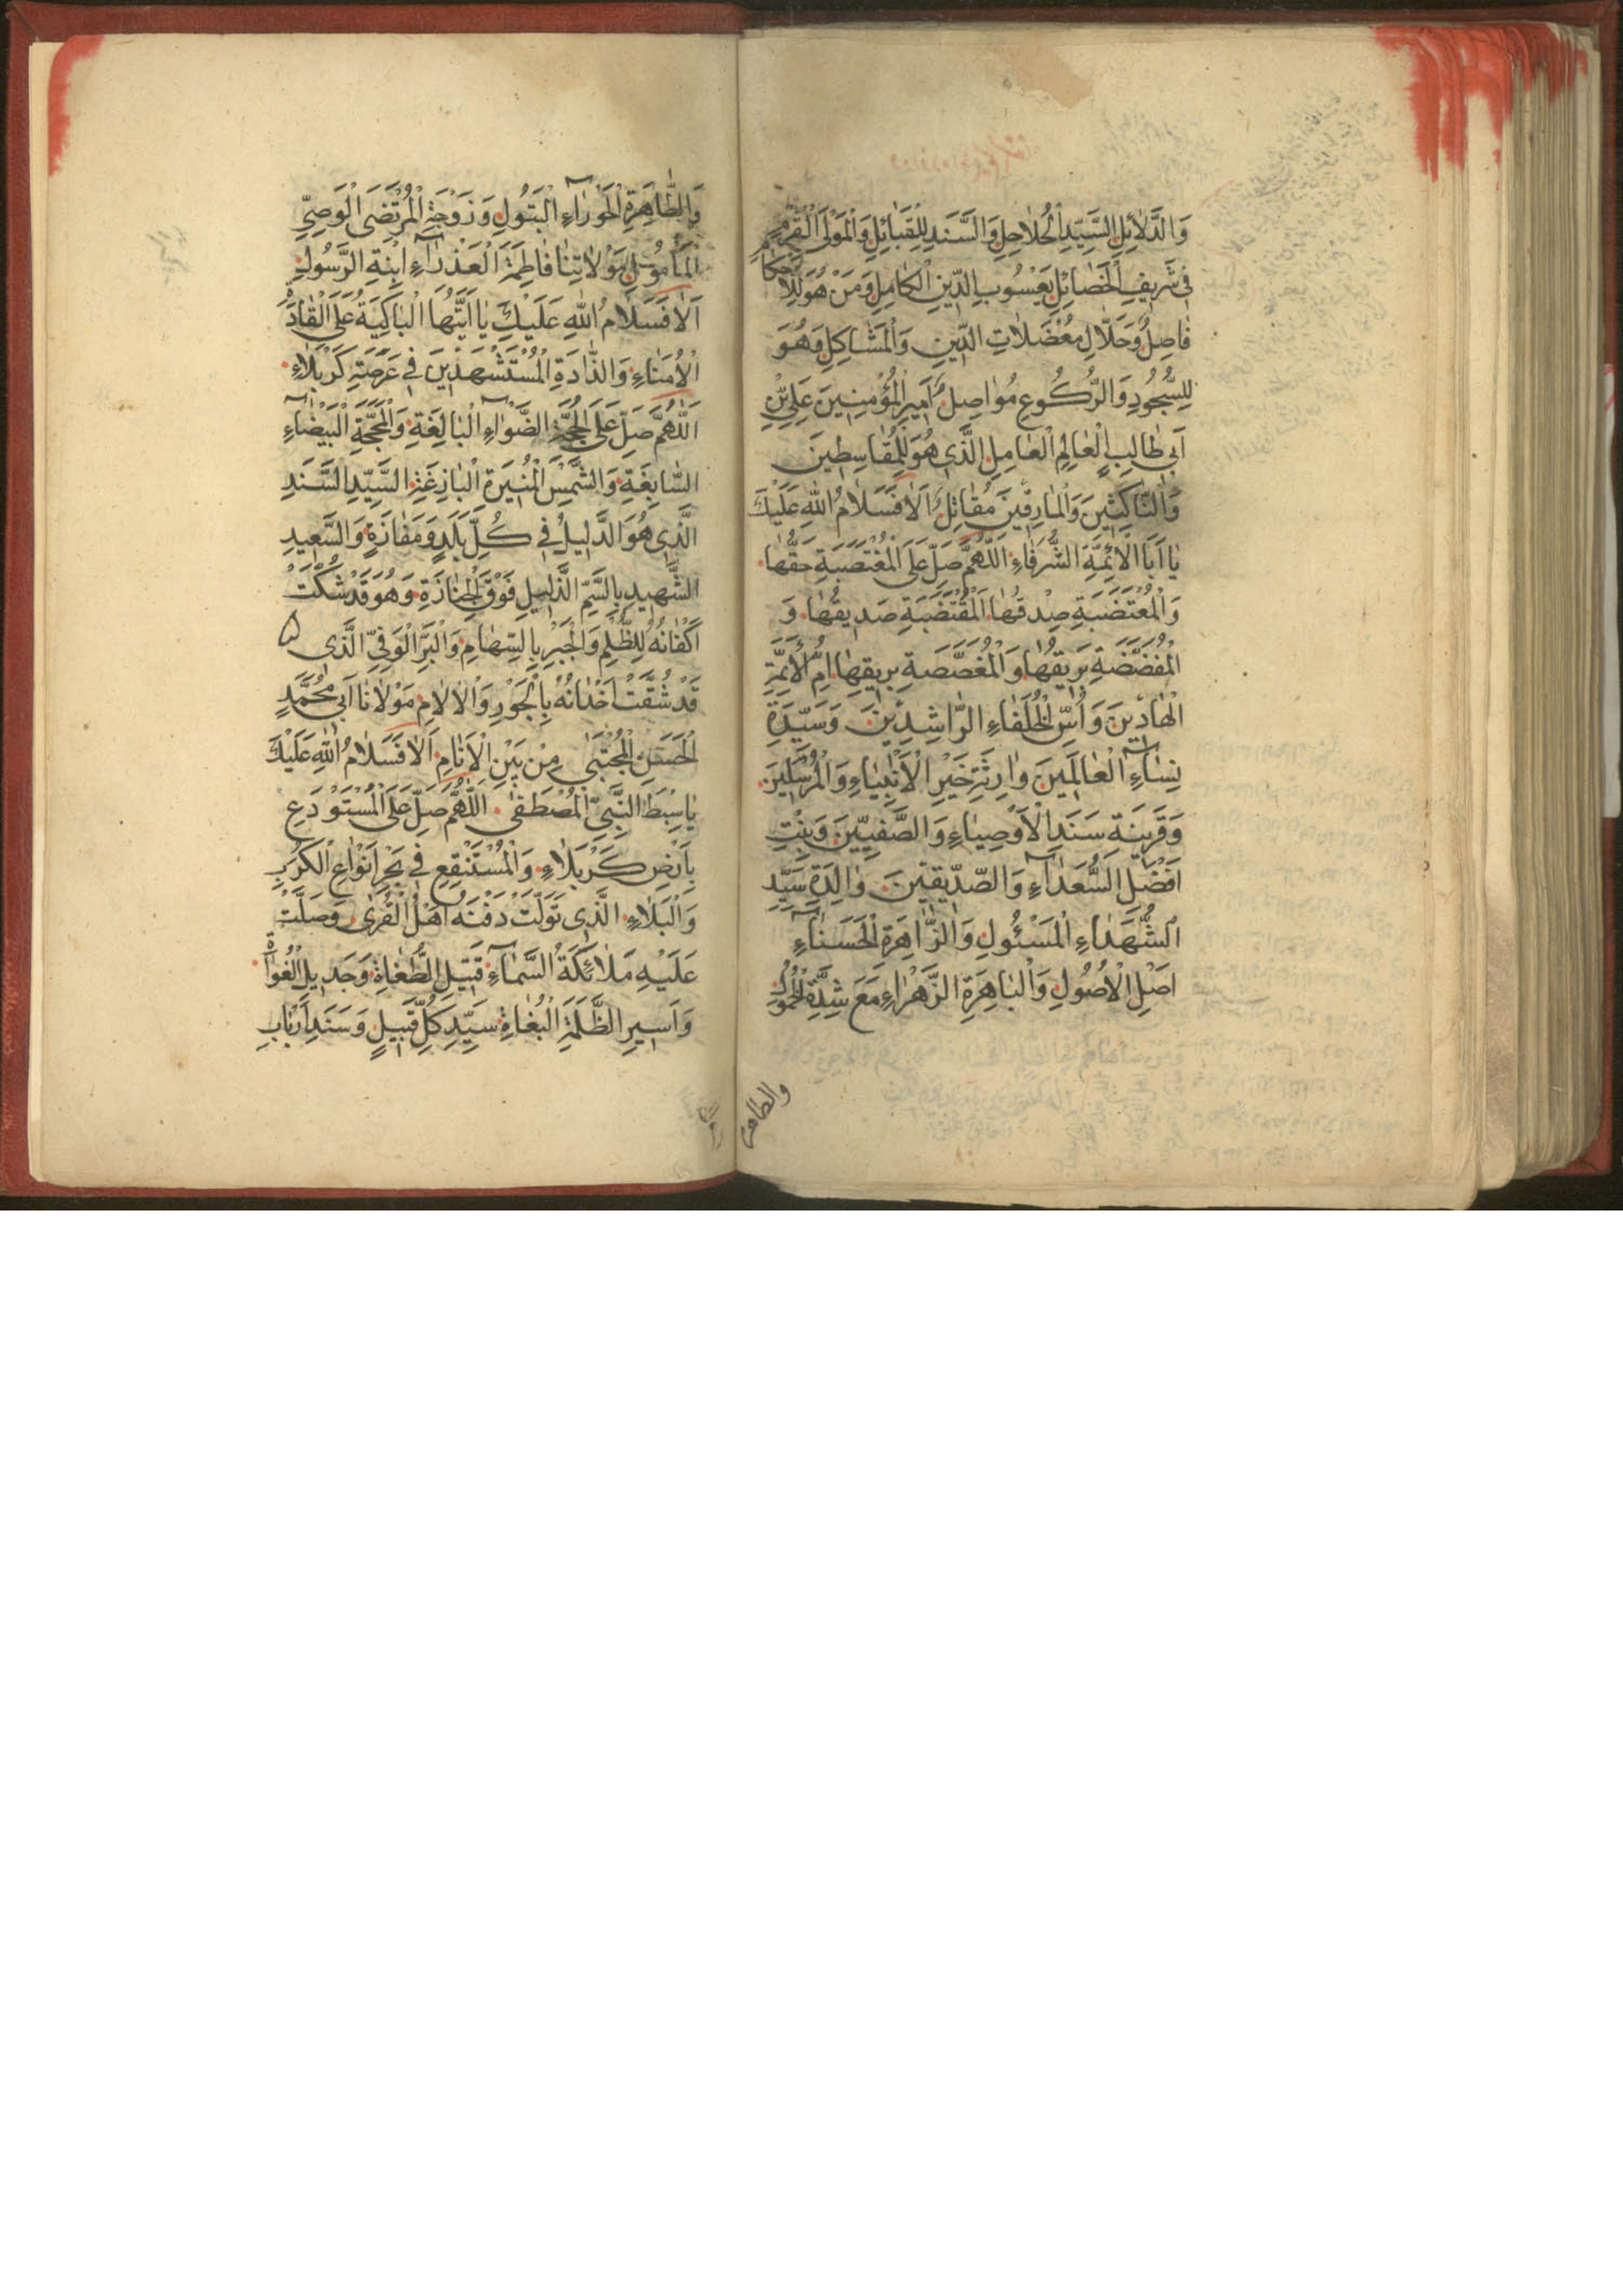 وَالدَّلَائِلِ السَّيِّدِ الْحُلَاحِلِ وَالسَّنَدِ لِلْقَبَائِلِ وَالْمَوْلَى الْقَرْمِ
فِي شَرِيفِ الْخَصَائِلِ يَعْسُوبِ الدِّينِ الْكَامِلِ وَمَنْ هُوَ لِلْأَحْكَامِ
فَاصِلٌ وَحَلَّالِ مُعْضَلَاتِ الدِّينِ وَالْمَشَاكِلِ وَهُوَ
لِلسُّجُودِ وَالرُّكُوعِ مُوَاصِلٌ أَمِيرِ الْمُؤْمِنِينَ عَلِيِّ بْنِ
أَبِي طَالِبٍ الْعَالِمِ الْعَامِلِ الَّذِي هُوَ لِلْقَاسِطِينَ
وَالنَّاكِثِينَ وَالْمَارِقِينَ مُقَاتِلٌ أَلَا فَسَلَامُ اللّٰهِ عَلَيْكَ
يَا أَبَا الْأَئِمَّةِ الشُّرَفَاءِ اَللّٰهُمَّ صَلِّ عَلَى الْمُغْتَصَبَةِ حَقُّهَا
وَالْمُغْتَضَبَةِ صِدْقُهَا الْمُقْتَضَبَةِ صَدِيقُهَا وَ
الْمُفَضَّضَةِ بَرِيقُهَا وَالْمُغَصَّصَةِ بِرِيقِهَا أُمِّ الْأَئِمَّةِ
الْهَادِينَ وَأُسِّ الْخُلَفَاءِ الرَّاشِدِينَ وَسَيِّدَةِ
نِسَاءِ الْعَالَمِينَ وَارِثَةِ خَيْرِ الْأَنْبِيَاءِ وَالْمُرْسَلِينَ
وَقَرِينَةِ سَنَدِ الْأَوْصِيَاءِ وَالصَّفِيِّينَ وَبِنْتِ
أَفْضَلِ السُّعَدَاءِ وَالصِّدِّيقِينَ وَالِدَةِ سَيِّدِ
الشُّهَدَاءِ الْمَسْئُولِ وَالزَّاهِرَةِ الْحَسَنَاءِ
أَصْلِ الْأُصُولِ وَالْبَاهِرَةِ الزَّهْرَاءِ مَعَ شِدَّةِ الْخُمُولِ
والطاهرة
وَالطَّاهِرَةِ الْحَوْرَاءِ الْبَتُولِ وَزَوْجَةِ الْمُرْتَضَى الْوَصِيِّ
الْمَأْمُولِ مَوْلَاتِنَا فَاطِمَةَ الْعَذْرَاءِ ابْنَةِ الرَّسُولِ
أَلَا فَسَلَامُ اللّٰهِ عَلَيْكِ يَا أَيَّتُهَا الْبَاكِيَةُ عَلَى الْقَادَةِ
الْأُمَنَاءِ وَالذَّادَةِ الْمُسْتَشْهَدِينَ فِي عَرْصَةِ كَرْبَلَاءِ
اَللّٰهُمَّ صَلِّ عَلَى الْحُجَّةِ الضَّوْاءِ الْبَالِغَةِ وَالْمَحَجَّةِ الْبَيْضَاءِ
السَّابِغَةِ وَالشَّمْسِ الْمُنِيرَةِ الْبَازِغَةِ السَّيِّدِ السَّنَدِ
الَّذِي هُوَ الدَّلِيلُ فِي كُلِّ بَلَدٍ وَمَفَازَةٍ وَالسَّعِيدِ
الشَّهِيدِ بِالسَّمِّ الَّذِي فَوْقَ الْجَنَازَةِ وَهُوَ قَدْ شُكَّتْ
أَكْفَانُهُ لِلظُّلْمِ وَالْجَبْرِ بِالسِّهَامِ وَالْبَرِّ الْوَفِيِّ الَّذِي
قَدْ شُقَّتْ أَخْدَانُهُ بِالْجَوْرِ وَالْآلَامِ مَوْلَانَا أَبِي مُحَمَّدٍ
الْحَسَنِ الْمُجْتَبَى مِنْ بَيْنِ الْأَنَامِ أَلَا فَسَلَامُ اللّٰهِ عَلَيْكَ
يَا سِبْطَ النَّبِيِّ الْمُصْطَفَى اَللّٰهُمَّ صَلِّ عَلَى الْمُسْتَوْدَعِ
بِأَرْضِ كَرْبَلَاءِ وَالْمُسْتَنْقِعِ فِي بَحْرِ أَنْوَاعِ الْكَرْبِ
وَالْبَلَاءِ الَّذِي تَوَلَّتْ دَفْنَهُ أَهْلُ الْقُرَى وَصَلَّتْ
عَلَيْهِ مَلَائِكَةُ السَّمَاءِ قَتِيلِ الطُّغَاةِ وَجَدِيلِ الْغُوَاةِ
وَأَسِيرِ الظَّلَمَةِ الْبُغَاةِ سَيِّدِ كُلِّ قَبِيلٍ وَسَنَدِ أَرْبَابِ